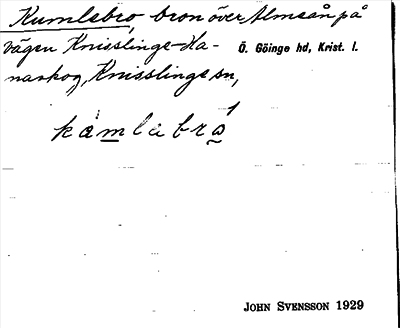 Kumlebro, bron över Almaån på
vägen Knisslinge-Ha-
narkog, Knisslinge sn,
Ö. Göinge hd, Krist. l.
kamlabra
JOHN SVENSSON 1929